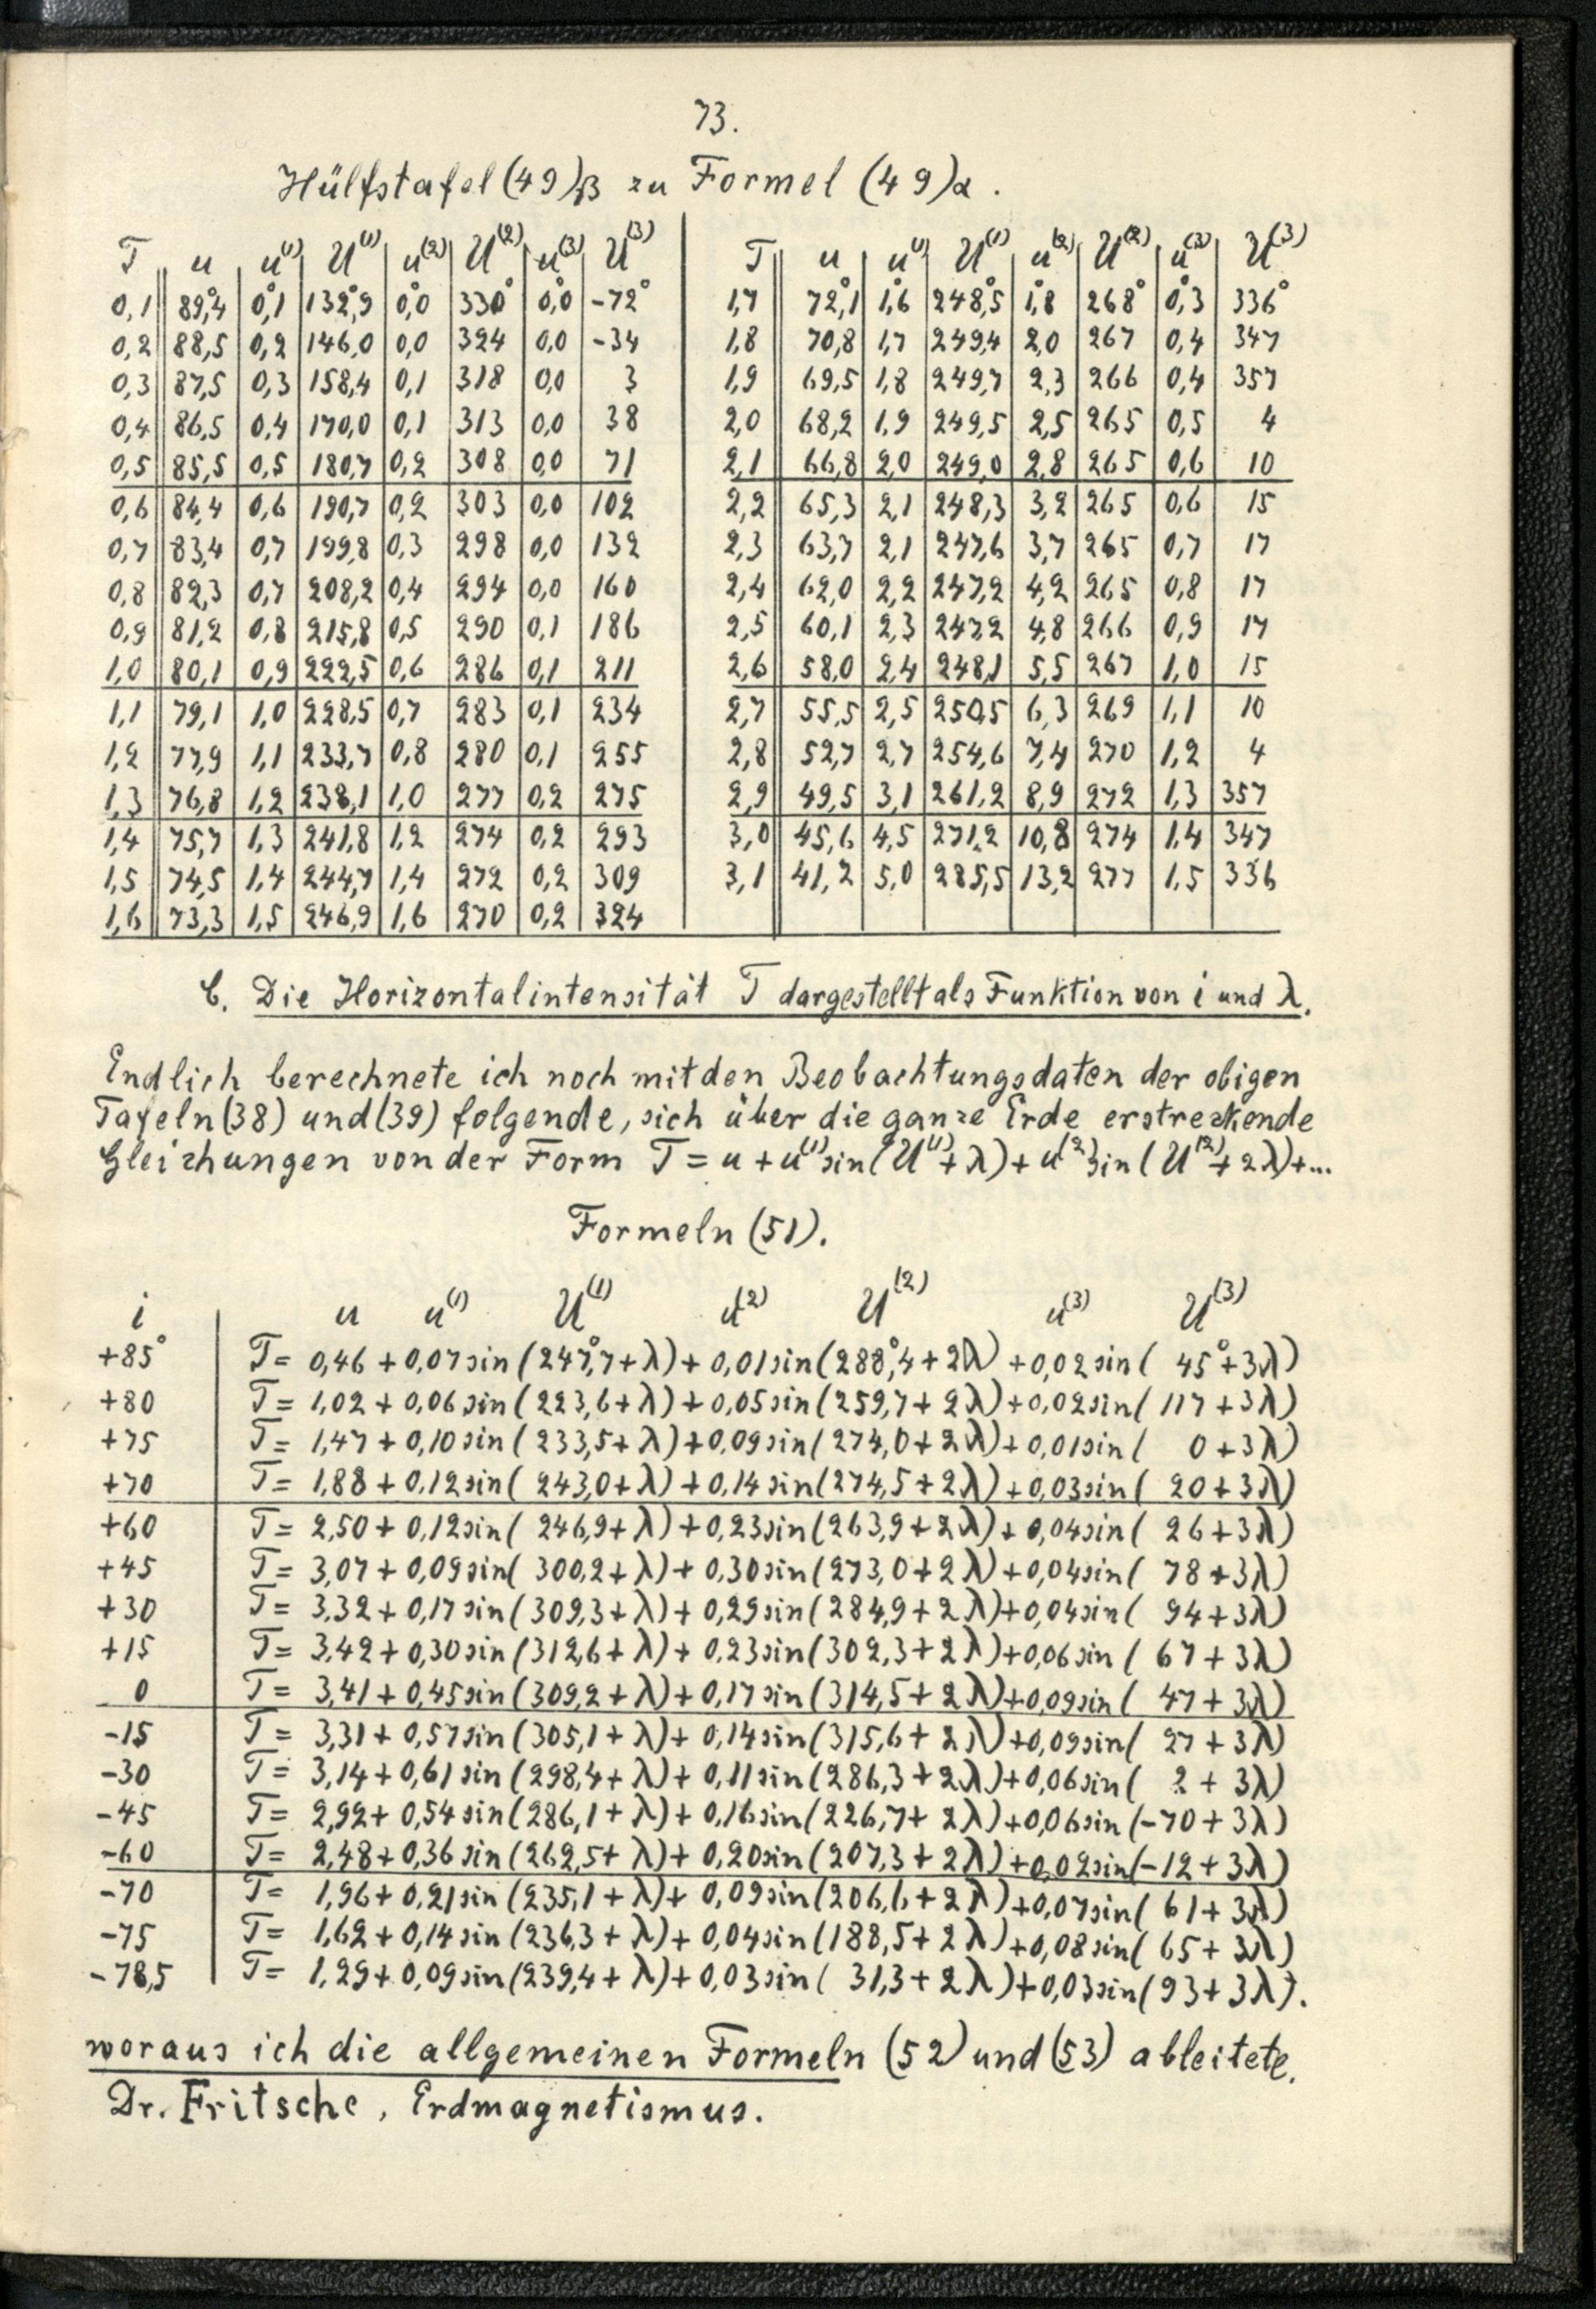 73.
Hülfstafel (49)β zu Formel (49)α.
T u u⁽¹⁾ U⁽¹⁾ u⁽²⁾ U⁽²⁾ u⁽³⁾ U⁽³⁾ T u u⁽¹⁾ U⁽¹⁾ u⁽²⁾ U⁽²⁾ u⁽³⁾ U⁽³⁾
0,1 89°,4 0°,1 132°,9 0°,0 330° 0°,0 -72° 1,7 72°,1 1°,6 248°,5 1°,8 268° 0°,3 336°
0,2 88,5 0,2 146,0 0,0 324 0,0 -34 1,8 70,8 1,7 249,4 2,0 267 0,4 347
0,3 87,5 0,3 158,4 0,1 318 0,0 3 1,9 69,5 1,8 249,7 2,3 266 0,4 357
0,4 86,5 0,4 170,0 0,1 313 0,0 38 2,0 68,2 1,9 249,5 2,5 265 0,5 4
0,5 85,5 0,5 180,7 0,2 308 0,0 71 2,1 66,8 2,0 249,0 2,8 265 0,6 10
0,6 84,4 0,6 190,7 0,2 303 0,0 102 2,2 65,3 2,1 248,3 3,2 265 0,6 15
0,7 83,4 0,7 199,8 0,3 298 0,0 132 2,3 63,7 2,1 247,6 3,7 265 0,7 17
0,8 82,3 0,7 208,2 0,4 294 0,0 160 2,4 62,0 2,2 247,2 4,2 265 0,8 17
0,9 81,2 0,8 215,8 0,5 290 0,1 186 2,5 60,1 2,3 247,2 4,8 266 0,9 17
1,0 80,1 0,9 222,5 0,6 286 0,1 211 2,6 58,0 2,4 248,1 5,5 267 1,0 15
1,1 79,1 1,0 228,5 0,7 283 0,1 234 2,7 55,5 2,5 250,5 6,3 269 1,1 10
1,2 77,9 1,1 233,7 0,8 280 0,1 255 2,8 52,7 2,7 254,6 7,4 270 1,2 4
1,3 76,8 1,2 238,1 1,0 277 0,2 275 2,9 49,5 3,1 261,2 8,9 272 1,3 357
1,4 75,7 1,3 241,8 1,2 274 0,2 293 3,0 45,6 4,5 271,2 10,8 274 1,4 347
1,5 74,5 1,4 244,7 1,4 272 0,2 309 3,1 41,2 5,0 285,5 13,2 277 1,5 336
1,6 73,3 1,5 246,9 1,6 270 0,2 324
C. Die Horizontalintensität T dargestellt als Funktion von i und λ.
Endlich berechnete ich noch mit den Beobachtungsdaten der obigen
Tafeln (38) und (39) folgende, sich über die ganze Erde erstreckende
Gleichungen von der Form T = u + u⁽¹⁾ sin (U⁽¹⁾ + λ) + u⁽²⁾ sin (U⁽²⁾ + 2λ) + ...
Formeln (51).
i u u⁽¹⁾ U⁽¹⁾ u⁽²⁾ U⁽²⁾ u⁽³⁾ U⁽³⁾
+85° T = 0,46 + 0,07 sin (247°,7 + λ) + 0,01 sin (288°,4 + 2λ) + 0,02 sin ( 45° + 3λ)
+80 T = 1,02 + 0,06 sin (223,6 + λ) + 0,05 sin (259,7 + 2λ) + 0,02 sin ( 117 + 3λ)
+75 T = 1,47 + 0,10 sin (233,5 + λ) + 0,09 sin (274,0 + 2λ) + 0,01 sin ( 0 + 3λ)
+70 T = 1,88 + 0,12 sin (243,0 + λ) + 0,14 sin (274,5 + 2λ) + 0,03 sin ( 20 + 3λ)
+60 T = 2,50 + 0,12 sin (246,9 + λ) + 0,23 sin (263,9 + 2λ) + 0,04 sin ( 26 + 3λ)
+45 T = 3,07 + 0,09 sin (300,2 + λ) + 0,30 sin (273,0 + 2λ) + 0,04 sin ( 78 + 3λ)
+30 T = 3,32 + 0,17 sin (309,3 + λ) + 0,29 sin (284,9 + 2λ) + 0,04 sin ( 94 + 3λ)
+15 T = 3,42 + 0,30 sin (312,6 + λ) + 0,23 sin (302,3 + 2λ) + 0,06 sin ( 67 + 3λ)
0 T = 3,41 + 0,45 sin (309,2 + λ) + 0,17 sin (314,5 + 2λ) + 0,09 sin ( 47 + 3λ)
-15 T = 3,31 + 0,57 sin (305,1 + λ) + 0,14 sin (315,6 + 2λ) + 0,09 sin ( 27 + 3λ)
-30 T = 3,14 + 0,61 sin (298,4 + λ) + 0,11 sin (286,3 + 2λ) + 0,06 sin ( 2 + 3λ)
-45 T = 2,92 + 0,54 sin (286,1 + λ) + 0,16 sin (226,7 + 2λ) + 0,06 sin (-70 + 3λ)
-60 T = 2,48 + 0,36 sin (262,5 + λ) + 0,20 sin (207,3 + 2λ) + 0,02 sin (-12 + 3λ)
-70 T = 1,96 + 0,21 sin (235,1 + λ) + 0,09 sin (206,6 + 2λ) + 0,07 sin ( 61 + 3λ)
-75 T = 1,62 + 0,14 sin (236,3 + λ) + 0,04 sin (188,5 + 2λ) + 0,08 sin ( 65 + 3λ)
-78,5 T = 1,29 + 0,09 sin (239,4 + λ) + 0,03 sin ( 31,3 + 2λ) + 0,03 sin (93 + 3λ).
woraus ich die allgemeinen Formeln (52) und (53) ableitete.
Dr. Fritsche, Erdmagnetismus.